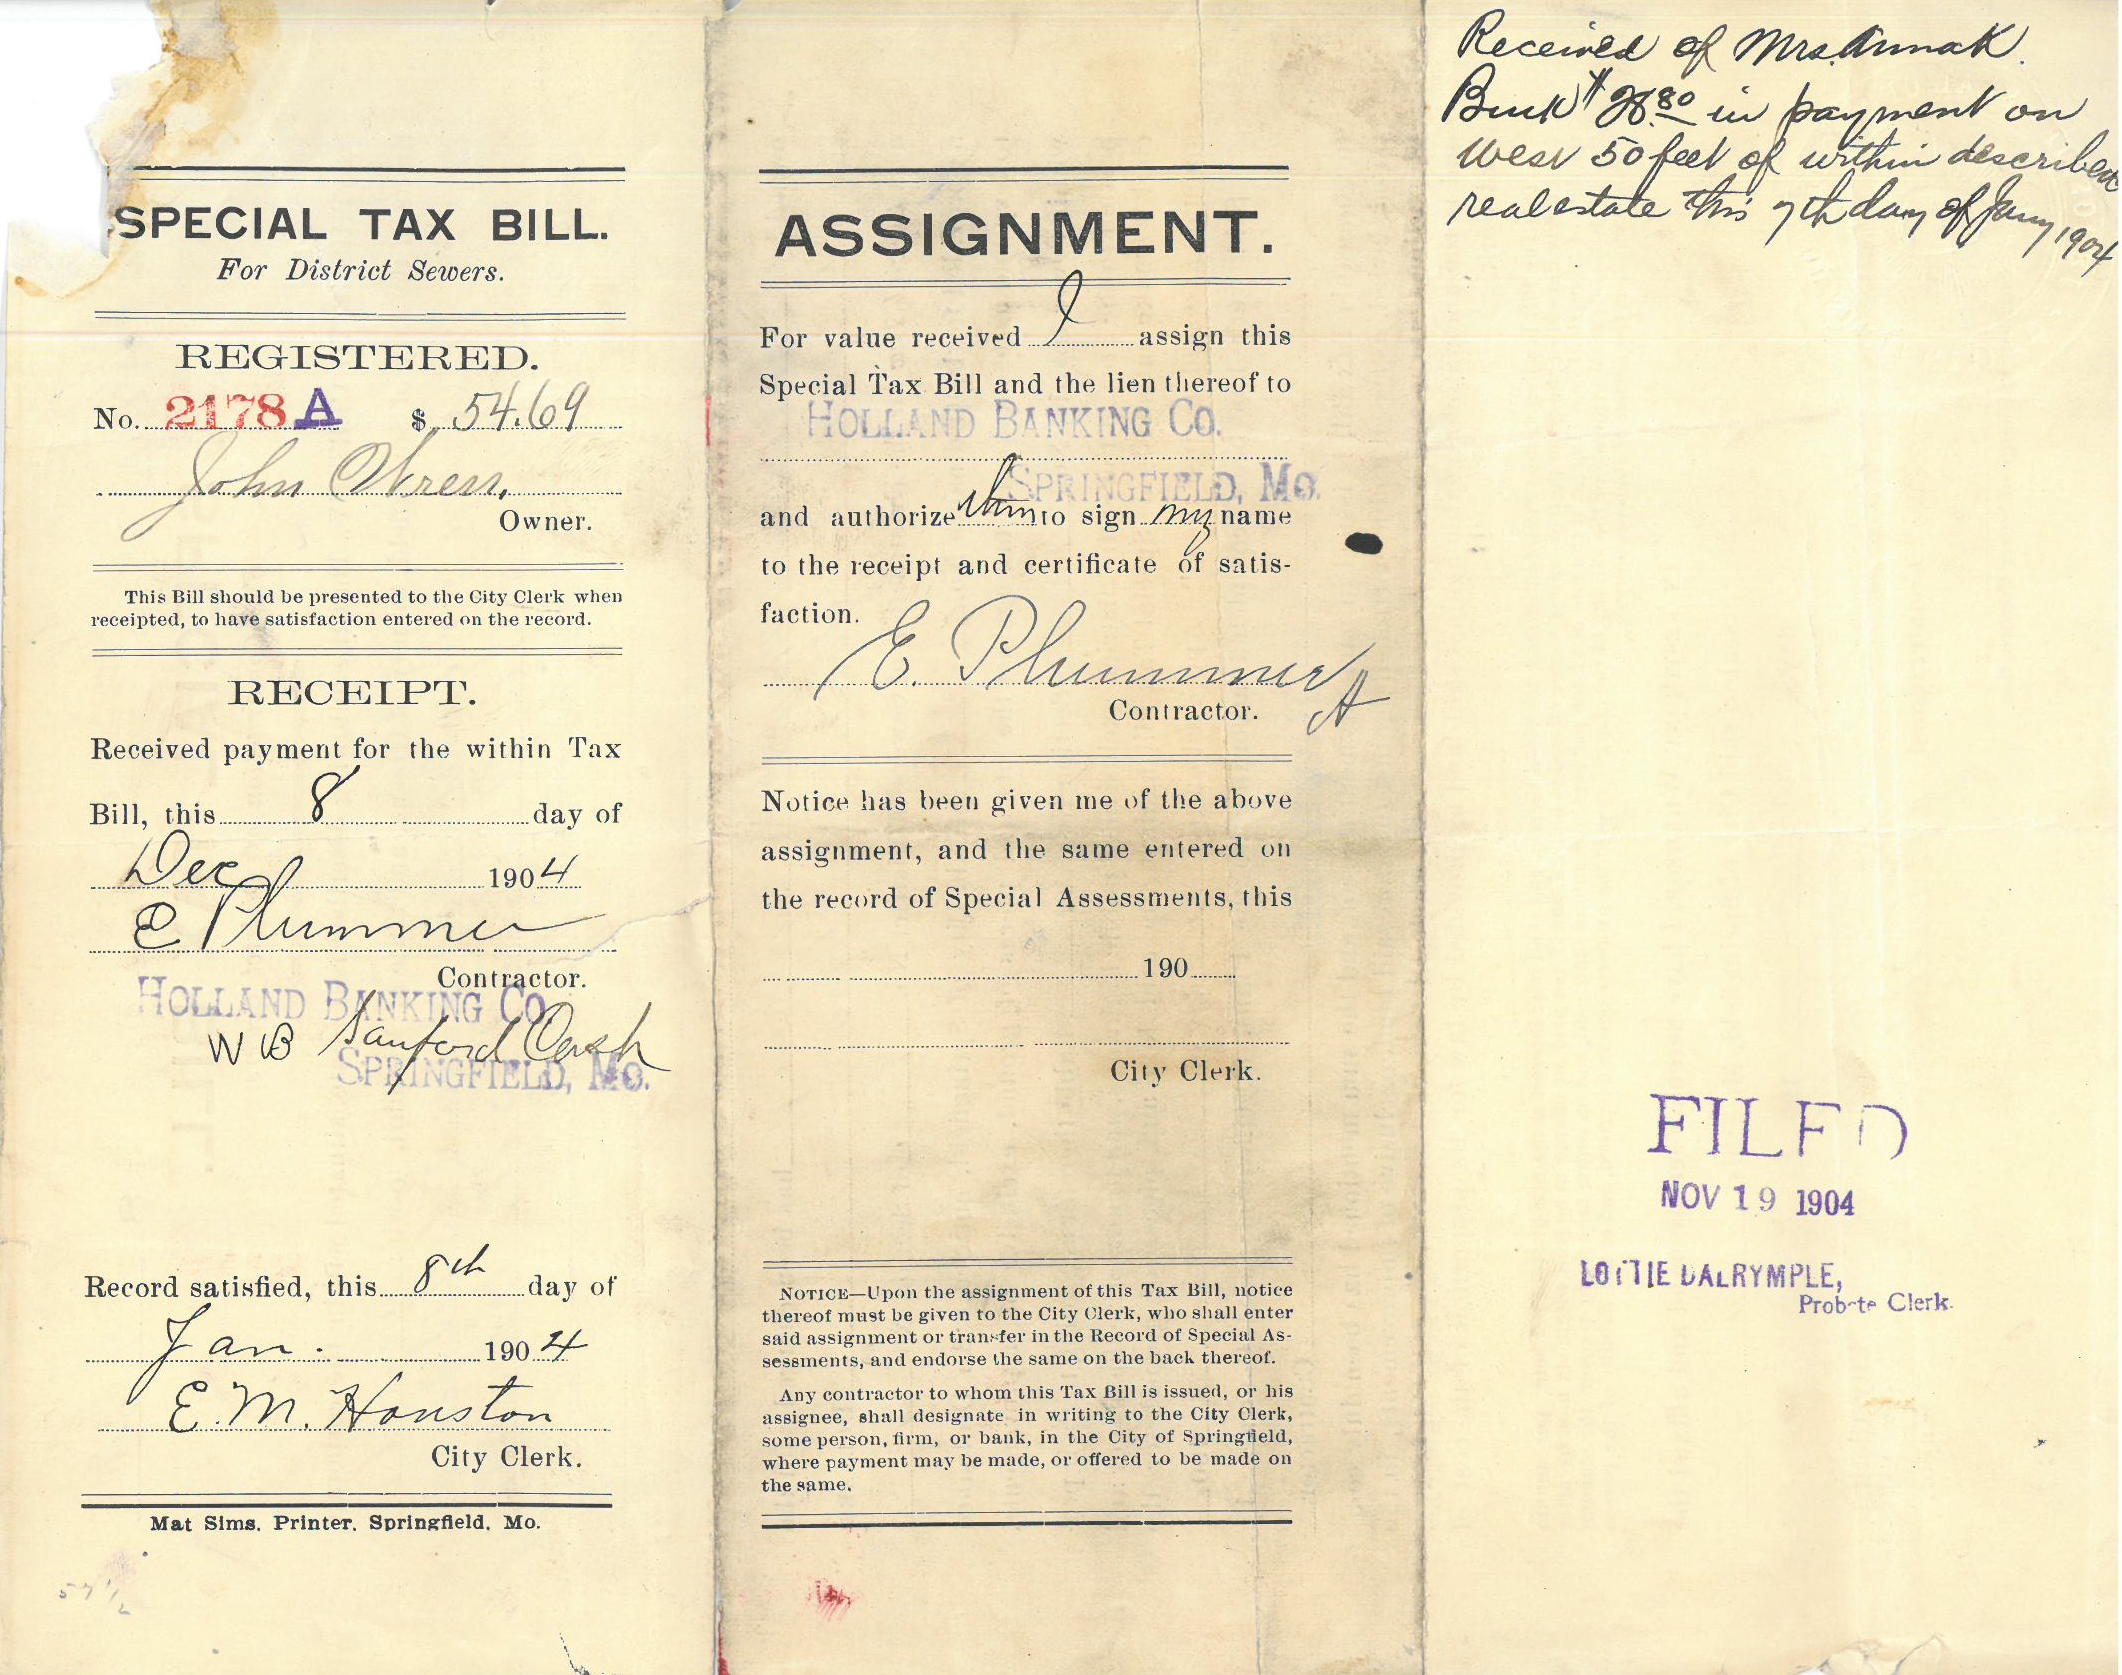 SPECIAL TAX BILL.
For District Sewers.
REGISTERED.
No. 2178 A $ 54.69
John
Owner.
This Bill should be presented to the City Clerk when
receipted, to have satisfaction entered on the record.
RECEIPT.
Received payment for the within Tax
Bill, this 8 day of
Dec 1904
E Plummer
Contractor.
HOLLAND BANKING CO.
W B Sanford Cash
SPRINGFIELD, MO.
Record satisfied, this 8th day of
Jan. 1904
E. M. Houston
City Clerk.
Mat Sims, Printer, Springfield, Mo.
ASSIGNMENT.
For value received I assign this
Special Tax Bill and the lien thereof to
HOLLAND BANKING CO.
SPRINGFIELD, MO.
and authorize them to sign my name
to the receipt and certificate of satis-
faction.
E. Plummer
Contractor.
Notice has been given me of the above
assignment, and the same entered on
the record of Special Assessments, this
190
City Clerk.
NOTICE—Upon the assignment of this Tax Bill, notice
thereof must be given to the City Clerk, who shall enter
said assignment or transfer in the Record of Special As-
sessments, and endorse the same on the back thereof.
Any contractor to whom this Tax Bill is issued, or his
assignee, shall designate in writing to the City Clerk,
some person, firm, or bank, in the City of Springfield,
where payment may be made, or offered to be made on
the same.
Received of Mrs. Anna K.
in payment on
West 50 feet of within described
real estate this 7th day of Jany 1904
FILED
NOV 19 1904
LOTTIE DALRYMPLE,
Probate Clerk.